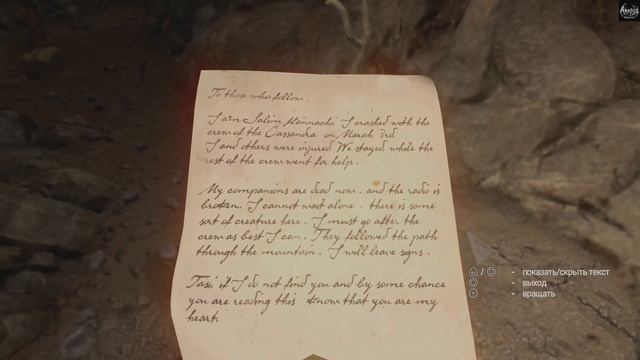 To those who follow.
I am Salim Mannachi I crashed with the
crew of the Cassandra on March 3rd
I and others were injured We stayed while the
rest of the crew went for help.
My companions are dead now, and the radio is
broken. I cannot wait alone - there is some
sort of creature here. I must go after the
crew as best I can. They followed the path
through the mountain. I will leave signs.
Tasi if I do not find you and by some chance
you are reading this know that you are my
heart.
/ - показать/скрыть текст
- выход
- вращать